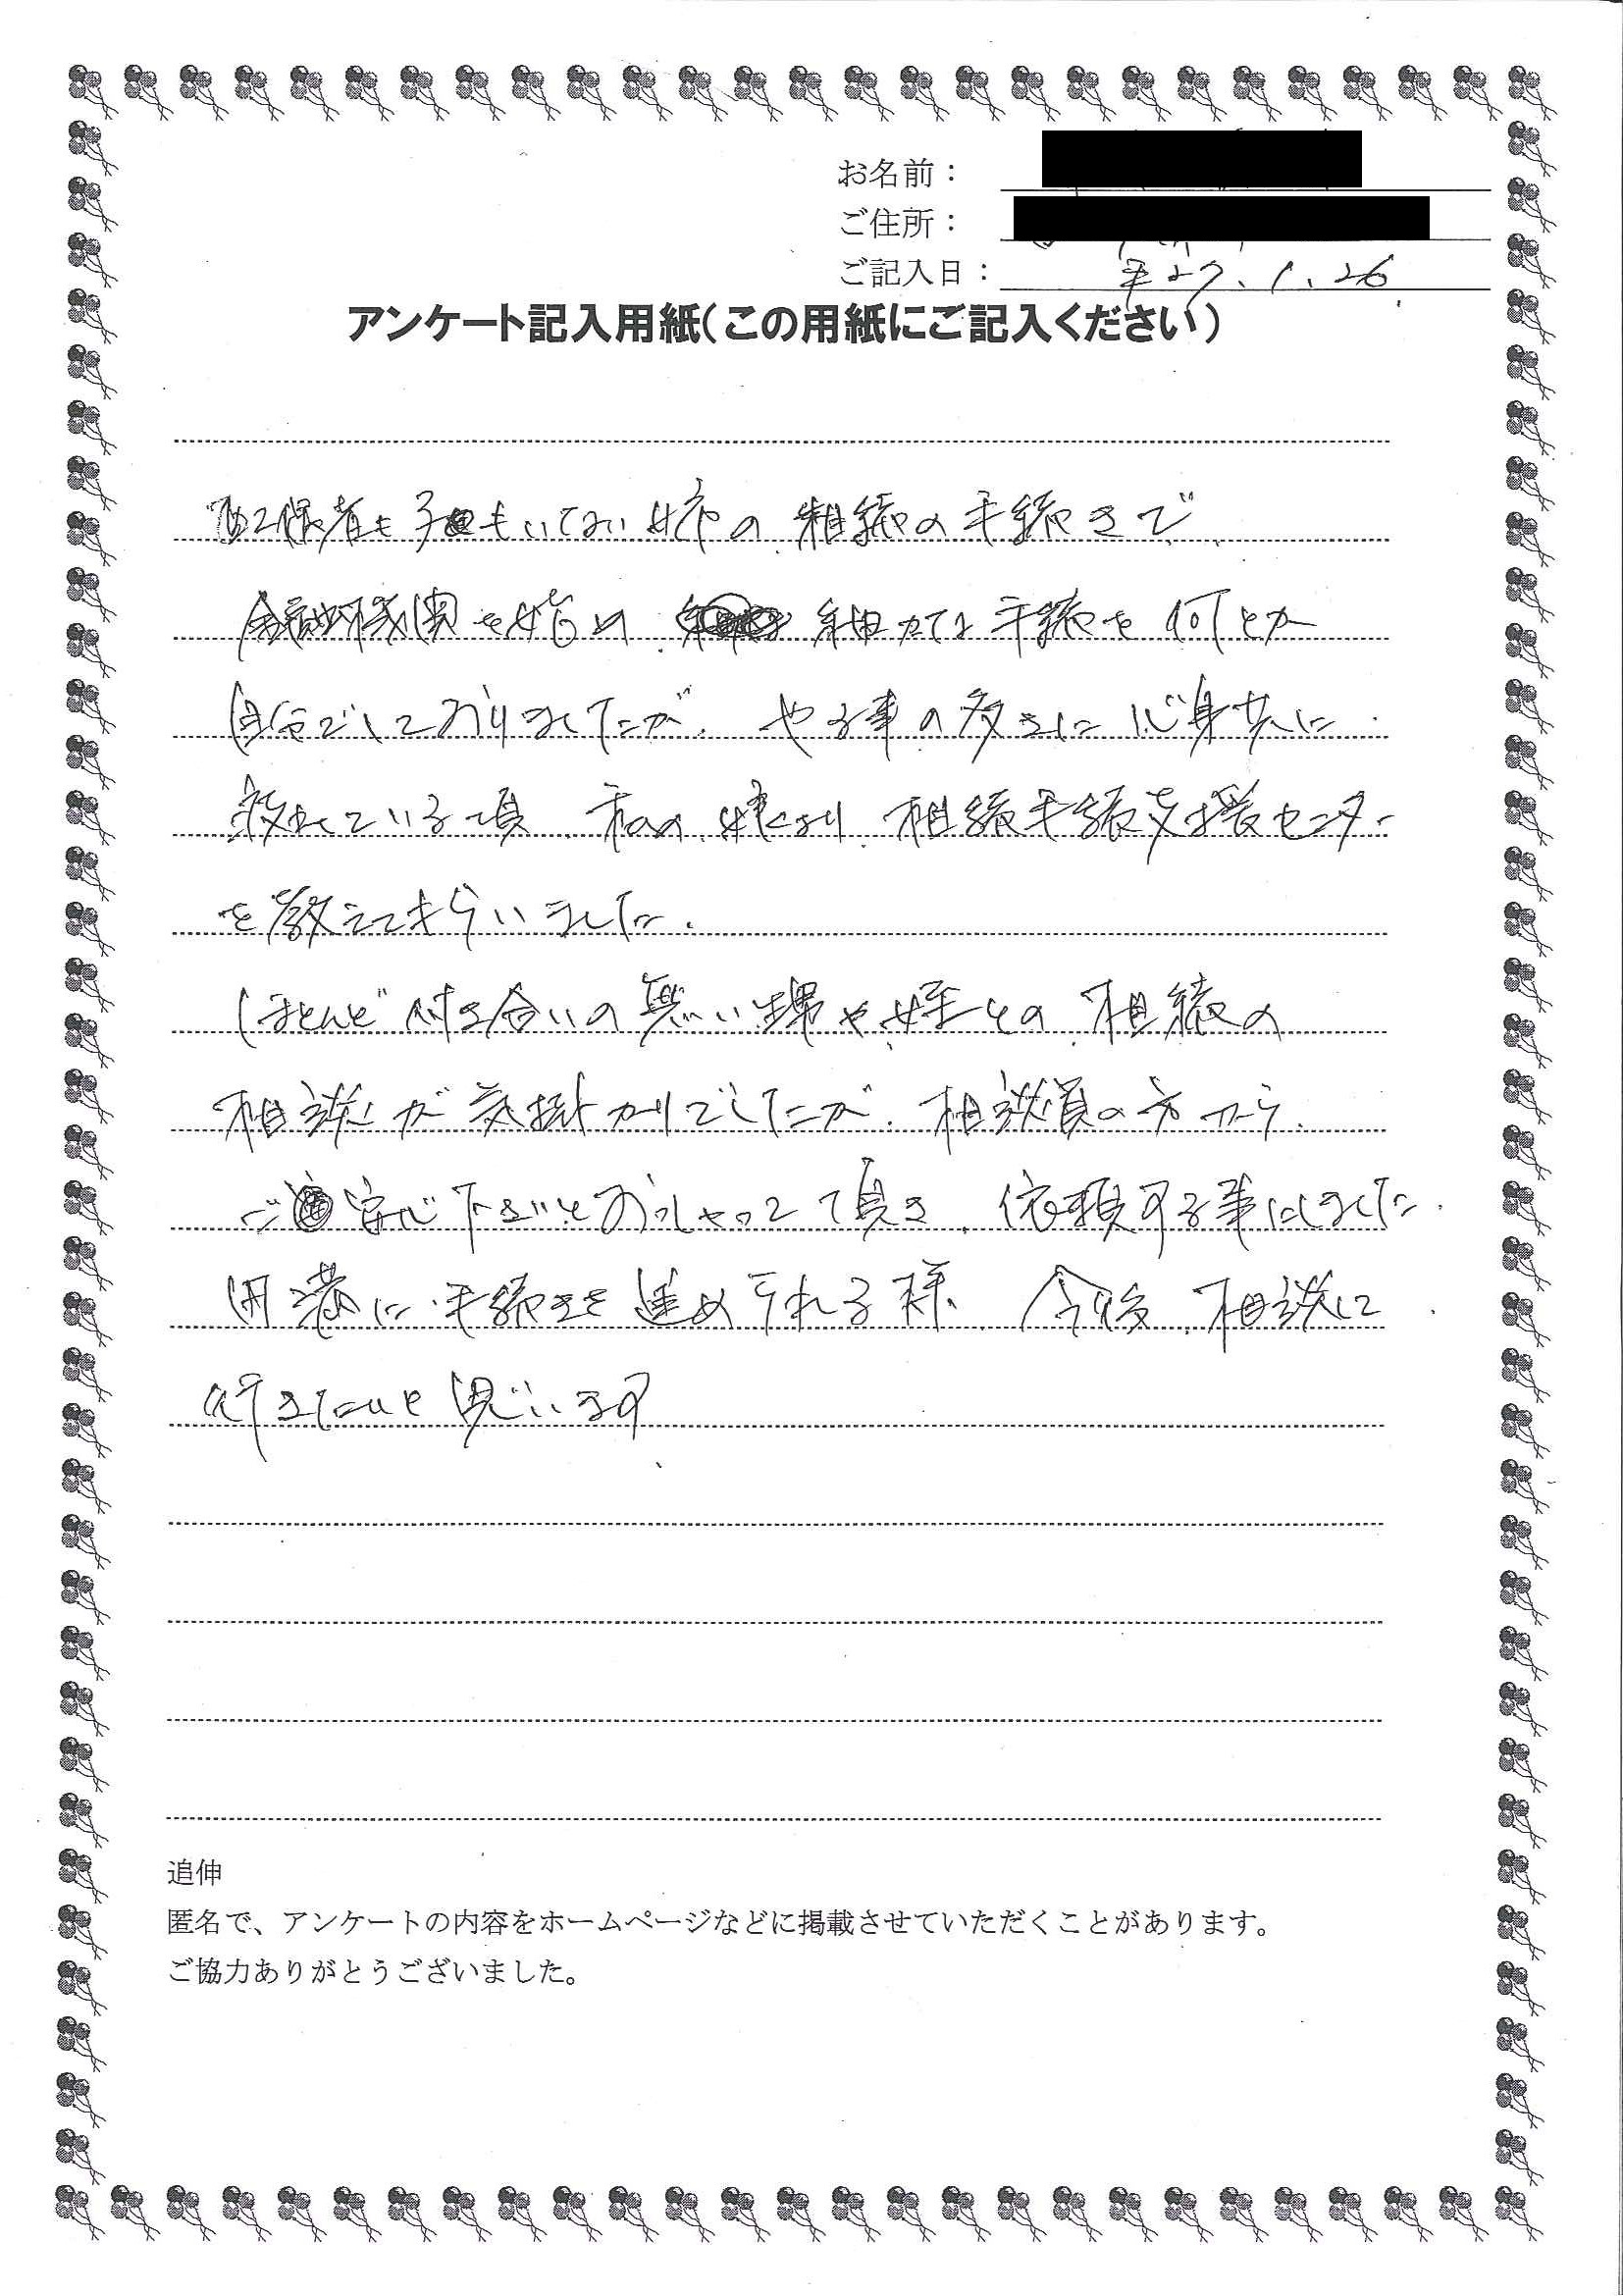 お名前：
ご住所：
ご記入日： 平27.1.26
アンケート記入用紙（この用紙にご記入ください）
配偶者も子どももいない姉の相続の手続きで
金融機関を始め 細かな手続を何とか
自分でしておりましたが、やる事の多さに心身共に
疲れている頃、私の姉より相続手続支援センター
を教えてもらいました。
ほとんど付き合いの無い甥や姪との相続の
相談が気掛かりでしたが、相談員の方から、
ご安心下さいとおっしゃって頂き、依頼する事にしました。
円満に手続きを進められる様、今後、相談に
行きたいと思います
追伸
匿名で、アンケートの内容をホームページなどに掲載させていただくことがあります。
ご協力ありがとうございました。